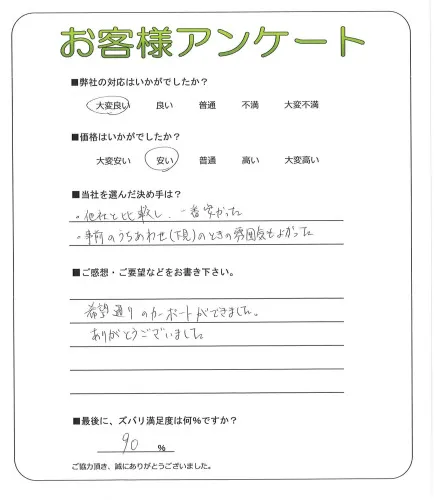 お客様アンケート
■弊社の対応はいかがでしたか？
大変良い 良い 普通 不満 大変不満
■価格はいかがでしたか？
大変安い 安い 普通 高い 大変高い
■当社を選んだ決め手は？
・他社と比較し、一番安かった
・事前のうちあわせ(下見)のときの雰囲気もよかった
■ご感想・ご要望などをお書き下さい。
希望通りのカーポートができました。
ありがとうございました
■最後に、ズバリ満足度は何％ですか？
90 ％
ご協力頂き、誠にありがとうございました。